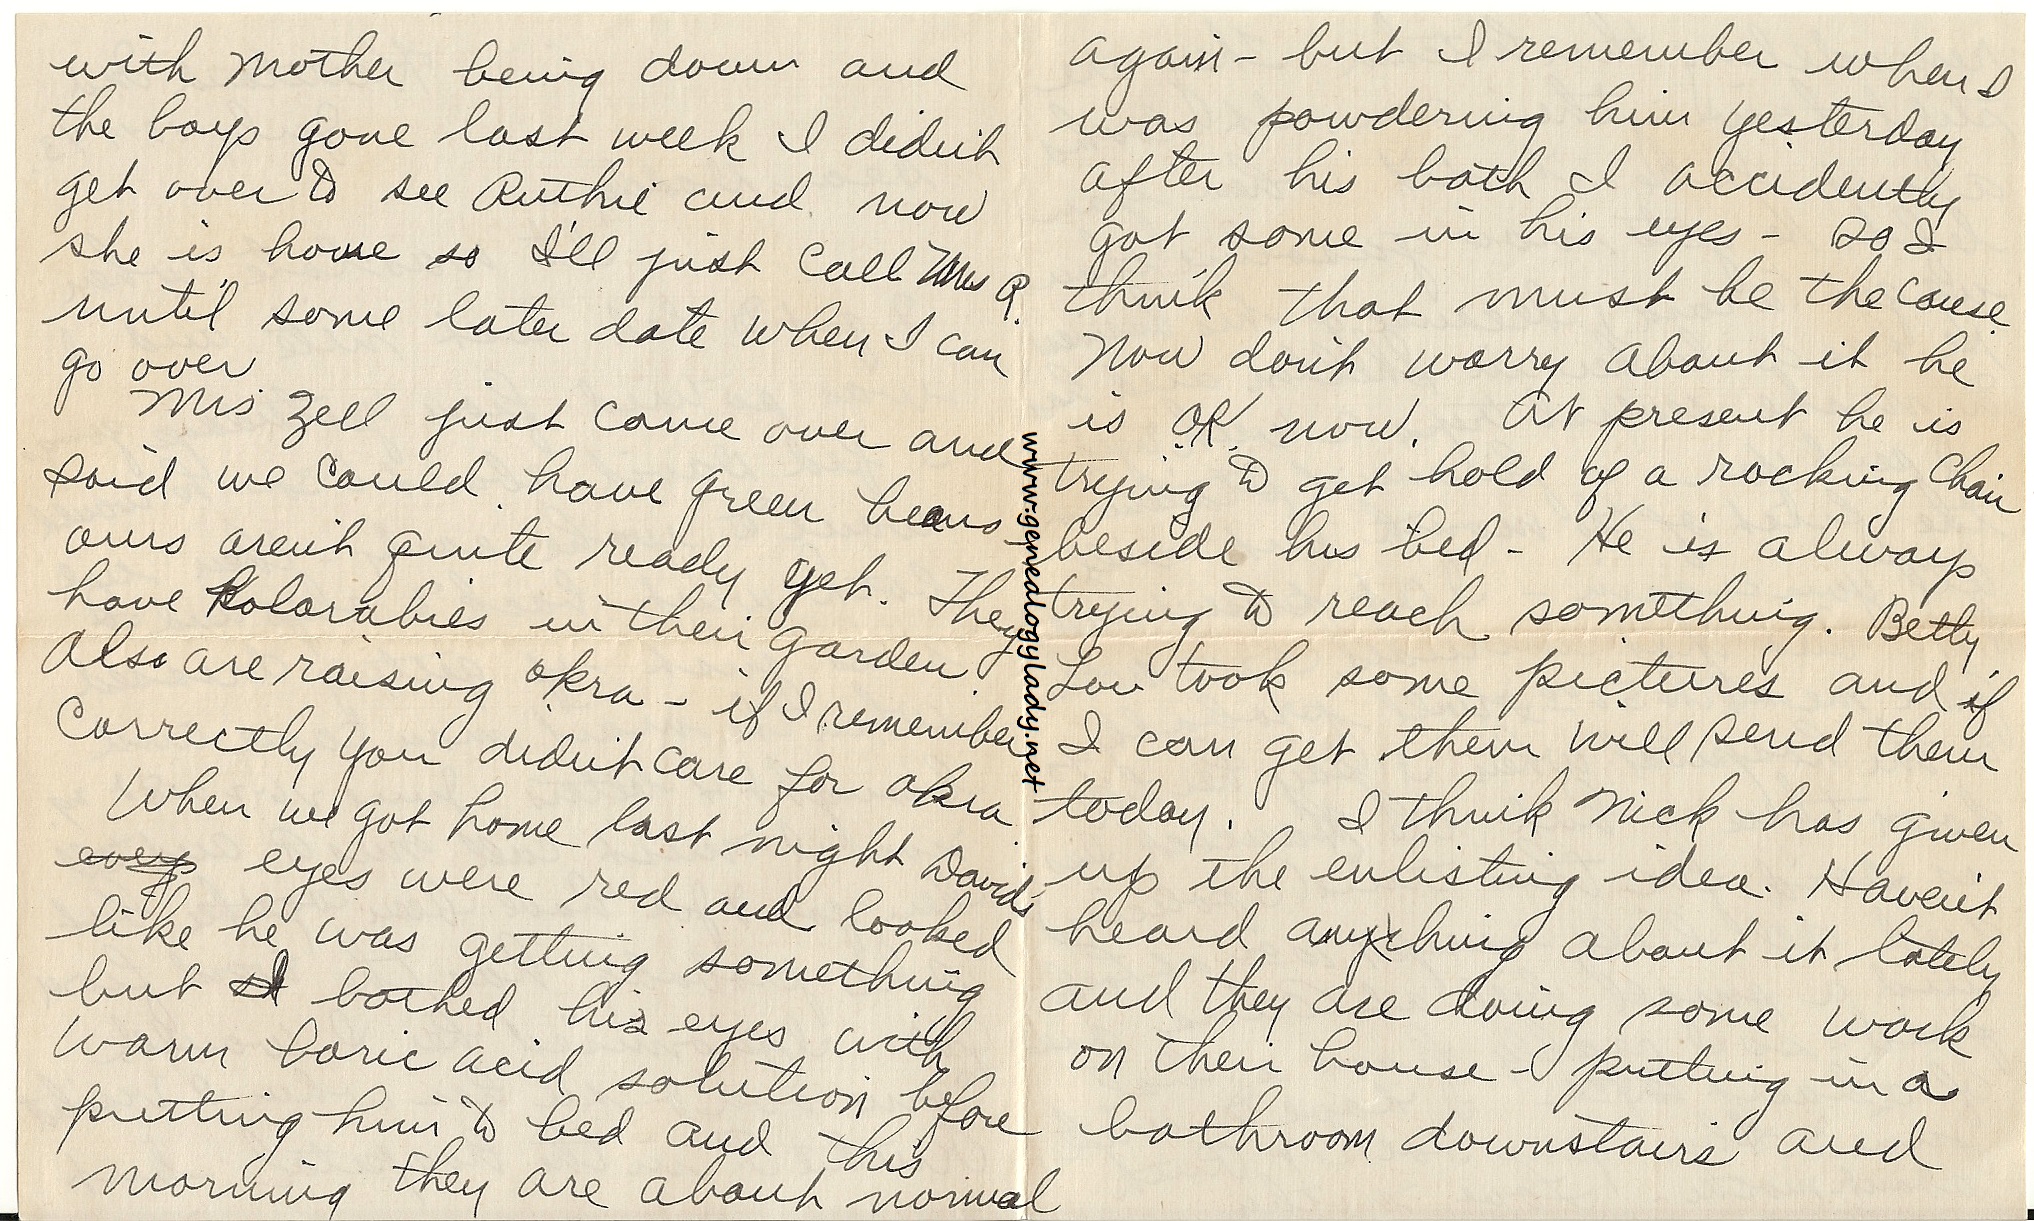 with Mother being down and
the boys gone last week I didn't
get over to see Ruthie and now
she is home so I'll just call Mrs R.
until some later date when I can
go over
Mrs Zell just came over and
said we could have green beans
ours aren't quite ready yet. They
have Kolarabies in their garden
also are raising okra - if I remember
correctly you didn't care for okra
When we got home last night David's
eyes were red and looked
like he was getting something
but I bathed his eyes with
warm boric acid solution before
putting him to bed and this
morning they are about normal
again - but I remember when I
was powdering him yesterday
after his bath I accidently
got some in his eyes - so I
think that must be the cause
Now don't worry about it he
is OK now. At present he is
trying to get hold of a rocking chair
beside his bed - He is always
trying to reach something. Betty
Lou took some pictures and if
I can get them will send them
today. I think Nick has given
up the enlisting idea. Haven't
heard anything about it lately
and they are doing some work
on their house - putting in a
bathroom downstairs and
www.genealogylady.net